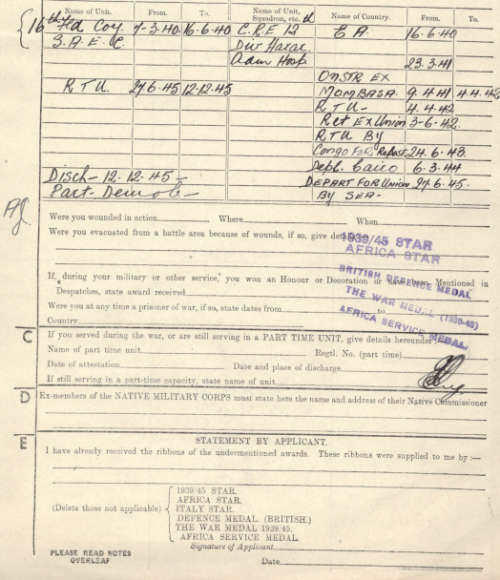 Name of Unit. From. To. Name of Unit, Squadron, etc. Name of Country. From. To.
16th Fld Coy 7-3-40 16.6.40 C.R.E 12th E A. 16.6.40
S.A.E.C. Div Harar
Adm Hosp 23.3.41
ONSTR EX
R T U 27.6.45 12.12.45 MOMBASA 9.4.41 4.4.42
R T U - 4.4.42
Ret Ex Union 3-6-42
R T U By
Congo For. Repost 24.6.43.
Disch - 12.12.45 - Depl. Cairo 6.3.44
Part. Demob - DEPART FOR UNION 27.6.45.
BY SEA -
Were you wounded in action Where When
Were you evacuated from a battle area because of wounds, if so, give details
1939/45 STAR
AFRICA STAR
If, during your military or other service, you won an Honour or Decoration or Mentioned in
Despatches, state award received
BRITISH DEFENCE MEDAL
THE WAR MEDAL (1939-45)
AFRICA SERVICE MEDAL
Were you at any time a prisoner of war, if so, state dates from to
Country
C
If you served during the war, or are still serving in a PART TIME UNIT, give details hereunder
Name of part time unit Regtl. No. (part time)
Date of attestation Date and place of discharge
If still serving in a part-time capacity, state name of unit
D
Ex-members of the NATIVE MILITARY CORPS must state here the name and address of their Native Commissioner
E
STATEMENT BY APPLICANT.
I have already received the ribbons of the undermentioned awards. These ribbons were supplied to me by :—
(Delete those not applicable)
1939-45 STAR.
AFRICA STAR.
ITALY STAR.
DEFENCE MEDAL (BRITISH.)
THE WAR MEDAL 1939/45.
AFRICA SERVICE MEDAL
Signature of Applicant
PLEASE READ NOTES
OVERLEAF
Date